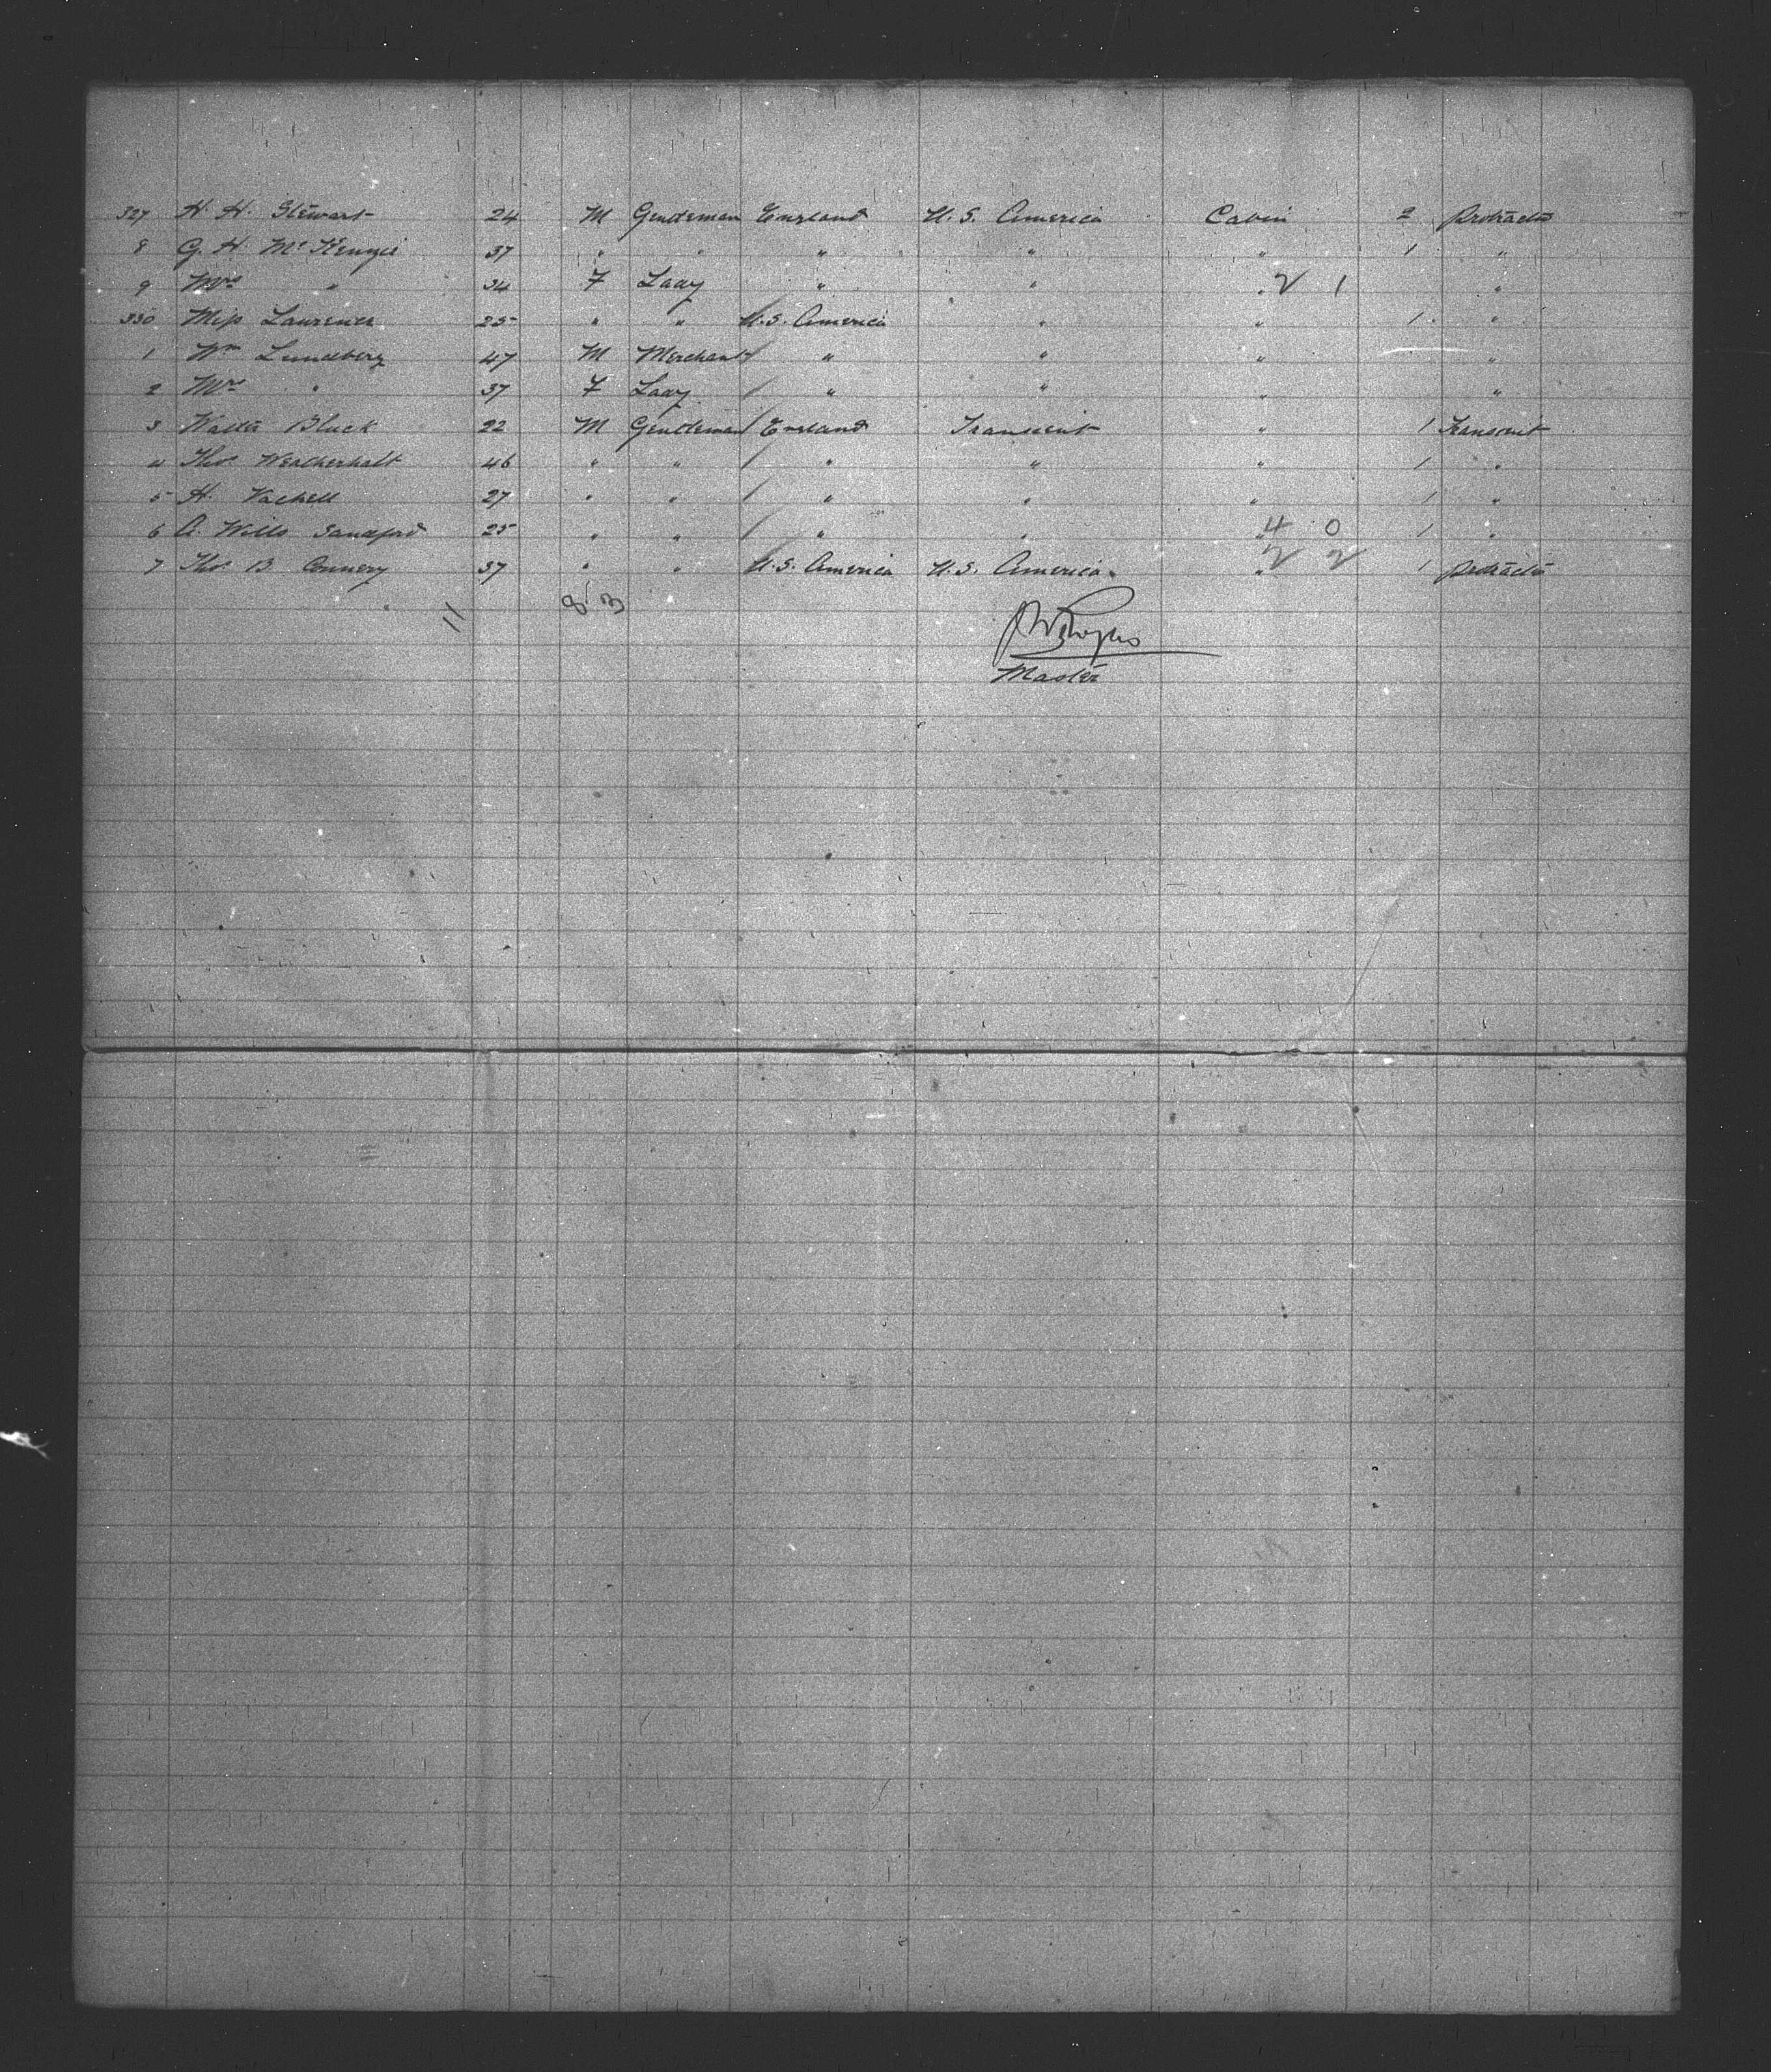 327 H. H. Stewart 24 M Gentleman England U. S. America Cabin 2 protracted
8 G. H. McKenzie 37 " " " " " 1 "
9 Mrs " 34 F Lady " " " 2 1 "
330 Miss Laurence 25 " " U. S. America " " 1 "
1 Wm Lundberg 47 M Merchant " " " "
2 Mrs " 37 F Lady " " " "
3 Walter Black 22 M Gentleman England Transient " 1 Transient
4 Thos Weatherhalt 46 " " " " " 1 "
5 H. Vachell 27 " " " " " 1 "
6 A. Wills Sandford 25 " " " " " 4 0 1 "
7 Thos B. Connery 37 " " U. S. America U. S. America " 2 2 1 protracted
11 8 3
Master